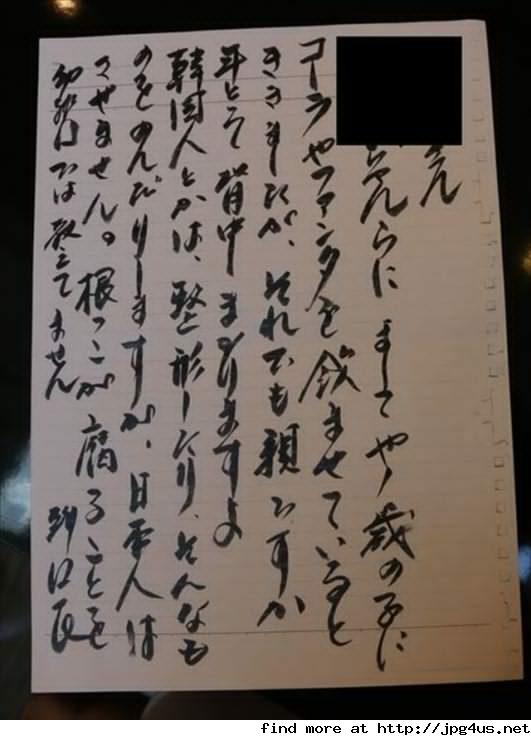 さん
ちゃんらに ましてや1歳の子に
コーラやファンタを飲ませていると
ききましたが、それでも親ですか
年とって背中まがりますよ
韓国人とかは、整形したり、そんなも
のをのんだりしますが、日本人は
させません。根っこが腐ることを
幼稚園では教えてません
野口
find more at http://jpg4us.net